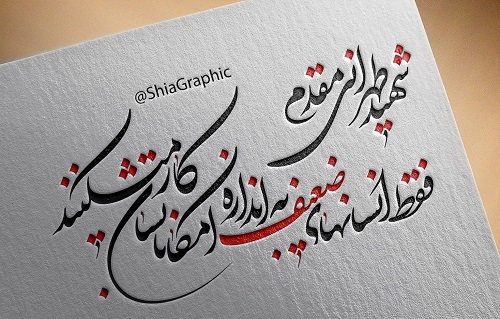 @ShiaGraphic
شهید طهرانی مقدم
فقط انسانهای ضعیف به اندازه امکاناتشان کار میکنند